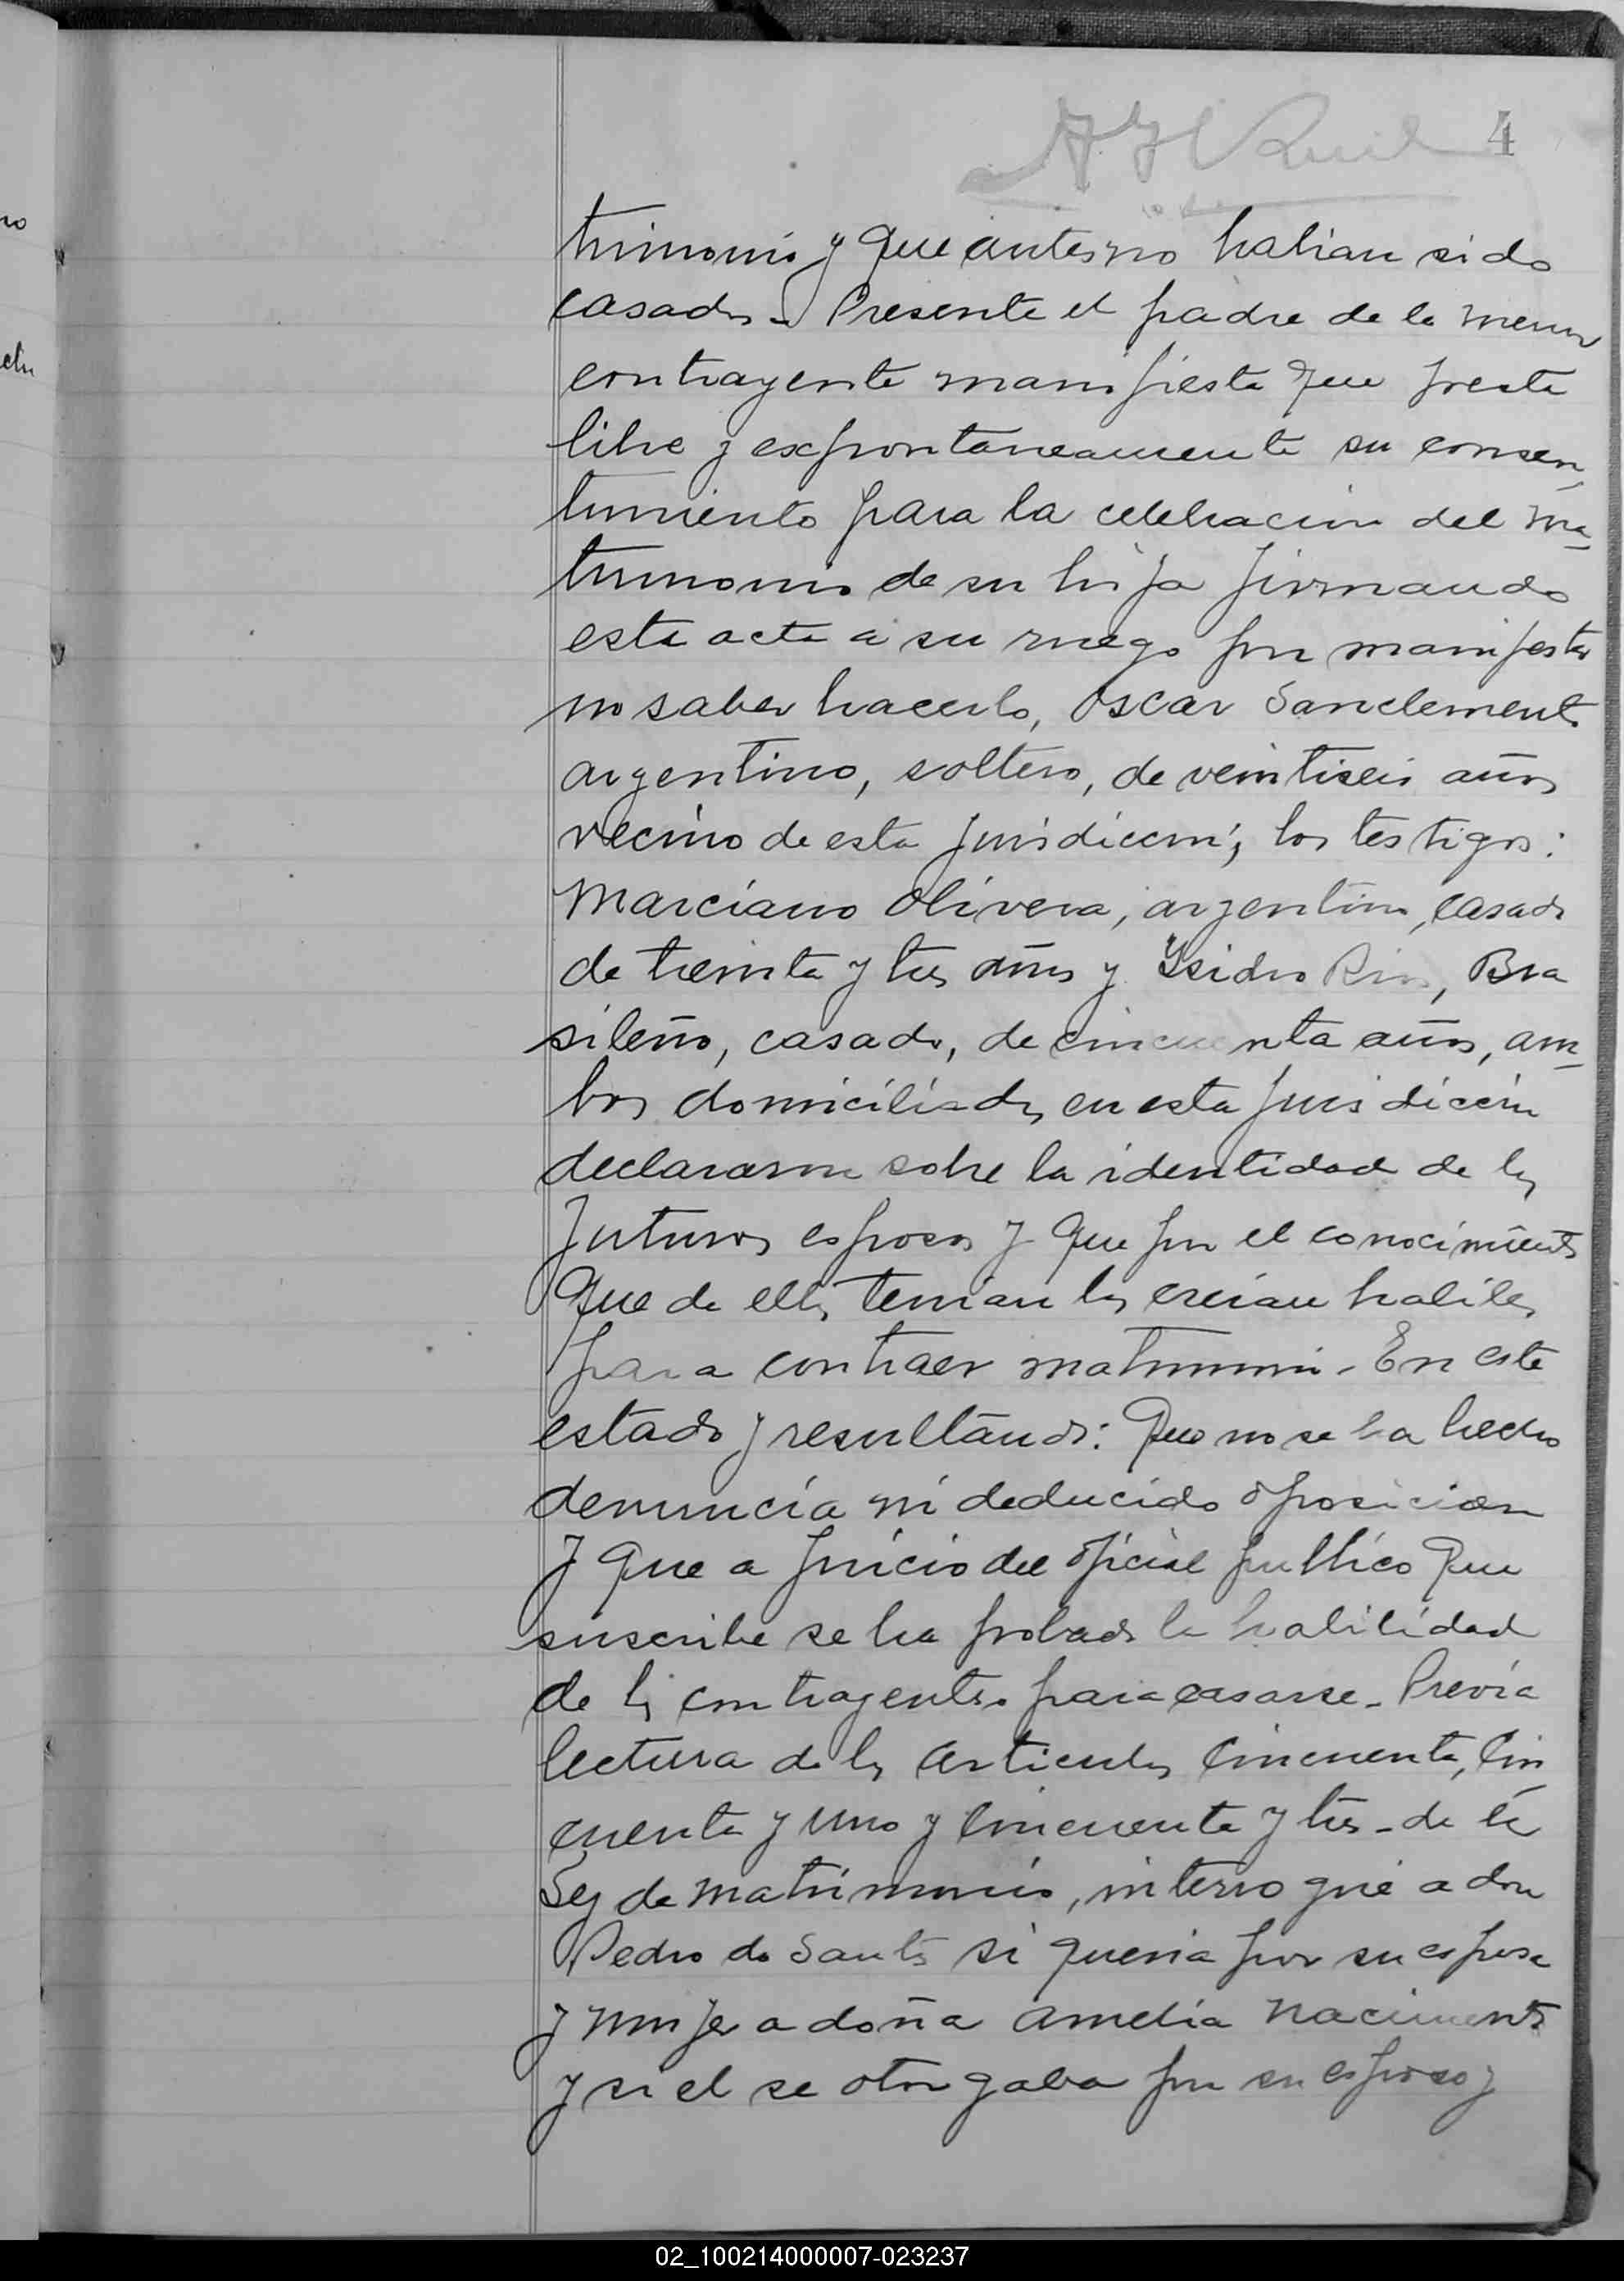 4
trimonio y que antes no habian sido
casados. Presente el padre de la menor
contrayente manifiesta que presta
libre y expontaneamente su consen
timiento para la celebracion del ma_
trimonio de su hija firmando
esta acta a su ruego por manifestar
no saber hacerlo, Oscar Sanclemente
argentino, soltero, de veintiseis años
vecino de esta jurisdiccion; los testigos:
Marciano Olivera, argentino, casado
de treinta y tres años y Ysidro Rios, Bra
sileño, casado, de cincuenta años, am_
bos domiciliados en esta jurisdiccion
declararon sobre la identidad de los
futuros esposos y que por el conocimiento
que de ellos tenian los creian habiles
para contraer matrimonio. En este
estado y resultando: Que no se ha hecho
denuncia ni deducido oposicion
y que a juicio del oficial publico que
suscribe se ha probado la habilidad
de los contrayentes para casarse. Previa
lectura de los articulos cincuenta, cin
cuenta y uno y cincuenta y tres de la
Ley de matrimonio, interrogué a don
Pedro do Santos si queria por su esposa
y mujer a doña Amelia Nacimento
y si el se otorgaba por su esposo y
02_100214000007-023237